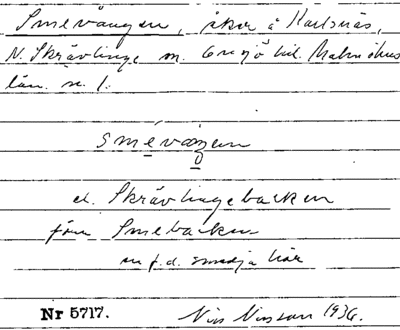 Smevången, åker å Karlsnäs,
N. Skrävlinge sn. Oxie hd. Malmöhus
län. n. 1.
smevången
el. Skrävlingebacken
förr Smebacken
en f.d. smedja här
Nr 5717. Nils Nilsson 1936.